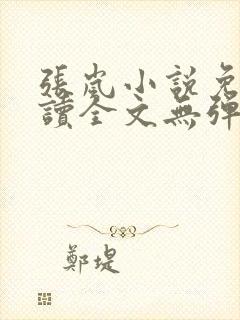 張嵐小説免
讀全文無彈
鄭堤